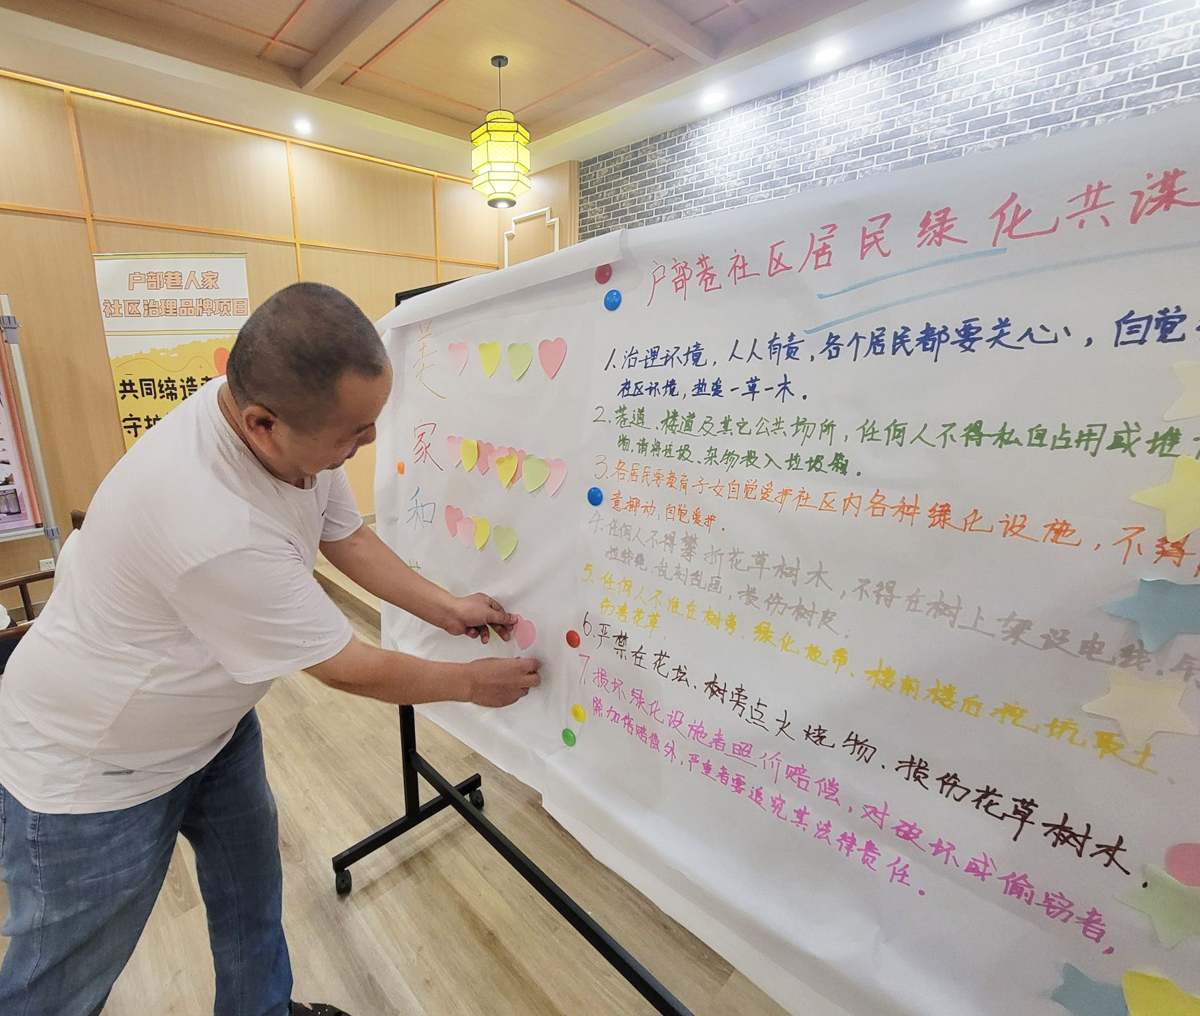 户部巷人家
社区治理品牌项目
共同缔造
守护
美
家
和
户部巷社区居民绿化共谋
1.治理环境,人人有责,各个居民都要关心、自觉
社区环境,热爱一草一木。
2.巷道、楼道及其它公共场所,任何人不得私自占用或堆
物,请将垃圾、杂物投入垃圾箱。
3.各居民要教育子女自觉爱护社区内各种绿化设施,不得
意挪动、自觉爱护。
4.任何人不得攀折花草树木,不得在树上架设电线、
拉铁绳、乱刻乱画,损伤树皮。
5.任何人不准在树旁、绿化地带、楼前楼后挖坑取土、
伤害花草。
6.严禁在花坛、树旁点火烧物、损伤花草树木.
7.损坏绿化设施者照价赔偿,对破坏或偷窃者,
除加倍赔偿外,严重者要追究其法律责任。